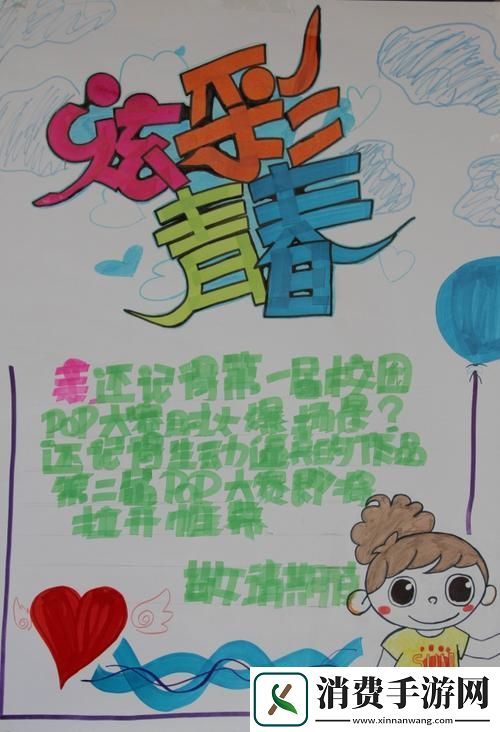 炫彩
青春
还记得第一届校园
POP大赛的火爆场景?
还记得生动逼真的作品
第二届POP大赛即将
拉开帷幕
敬请期待
消费手游网
www.xinnanwang.com